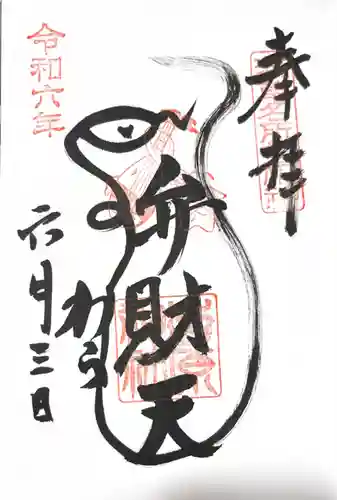 奉拝
弁財天
わら
令和六年
六月三日